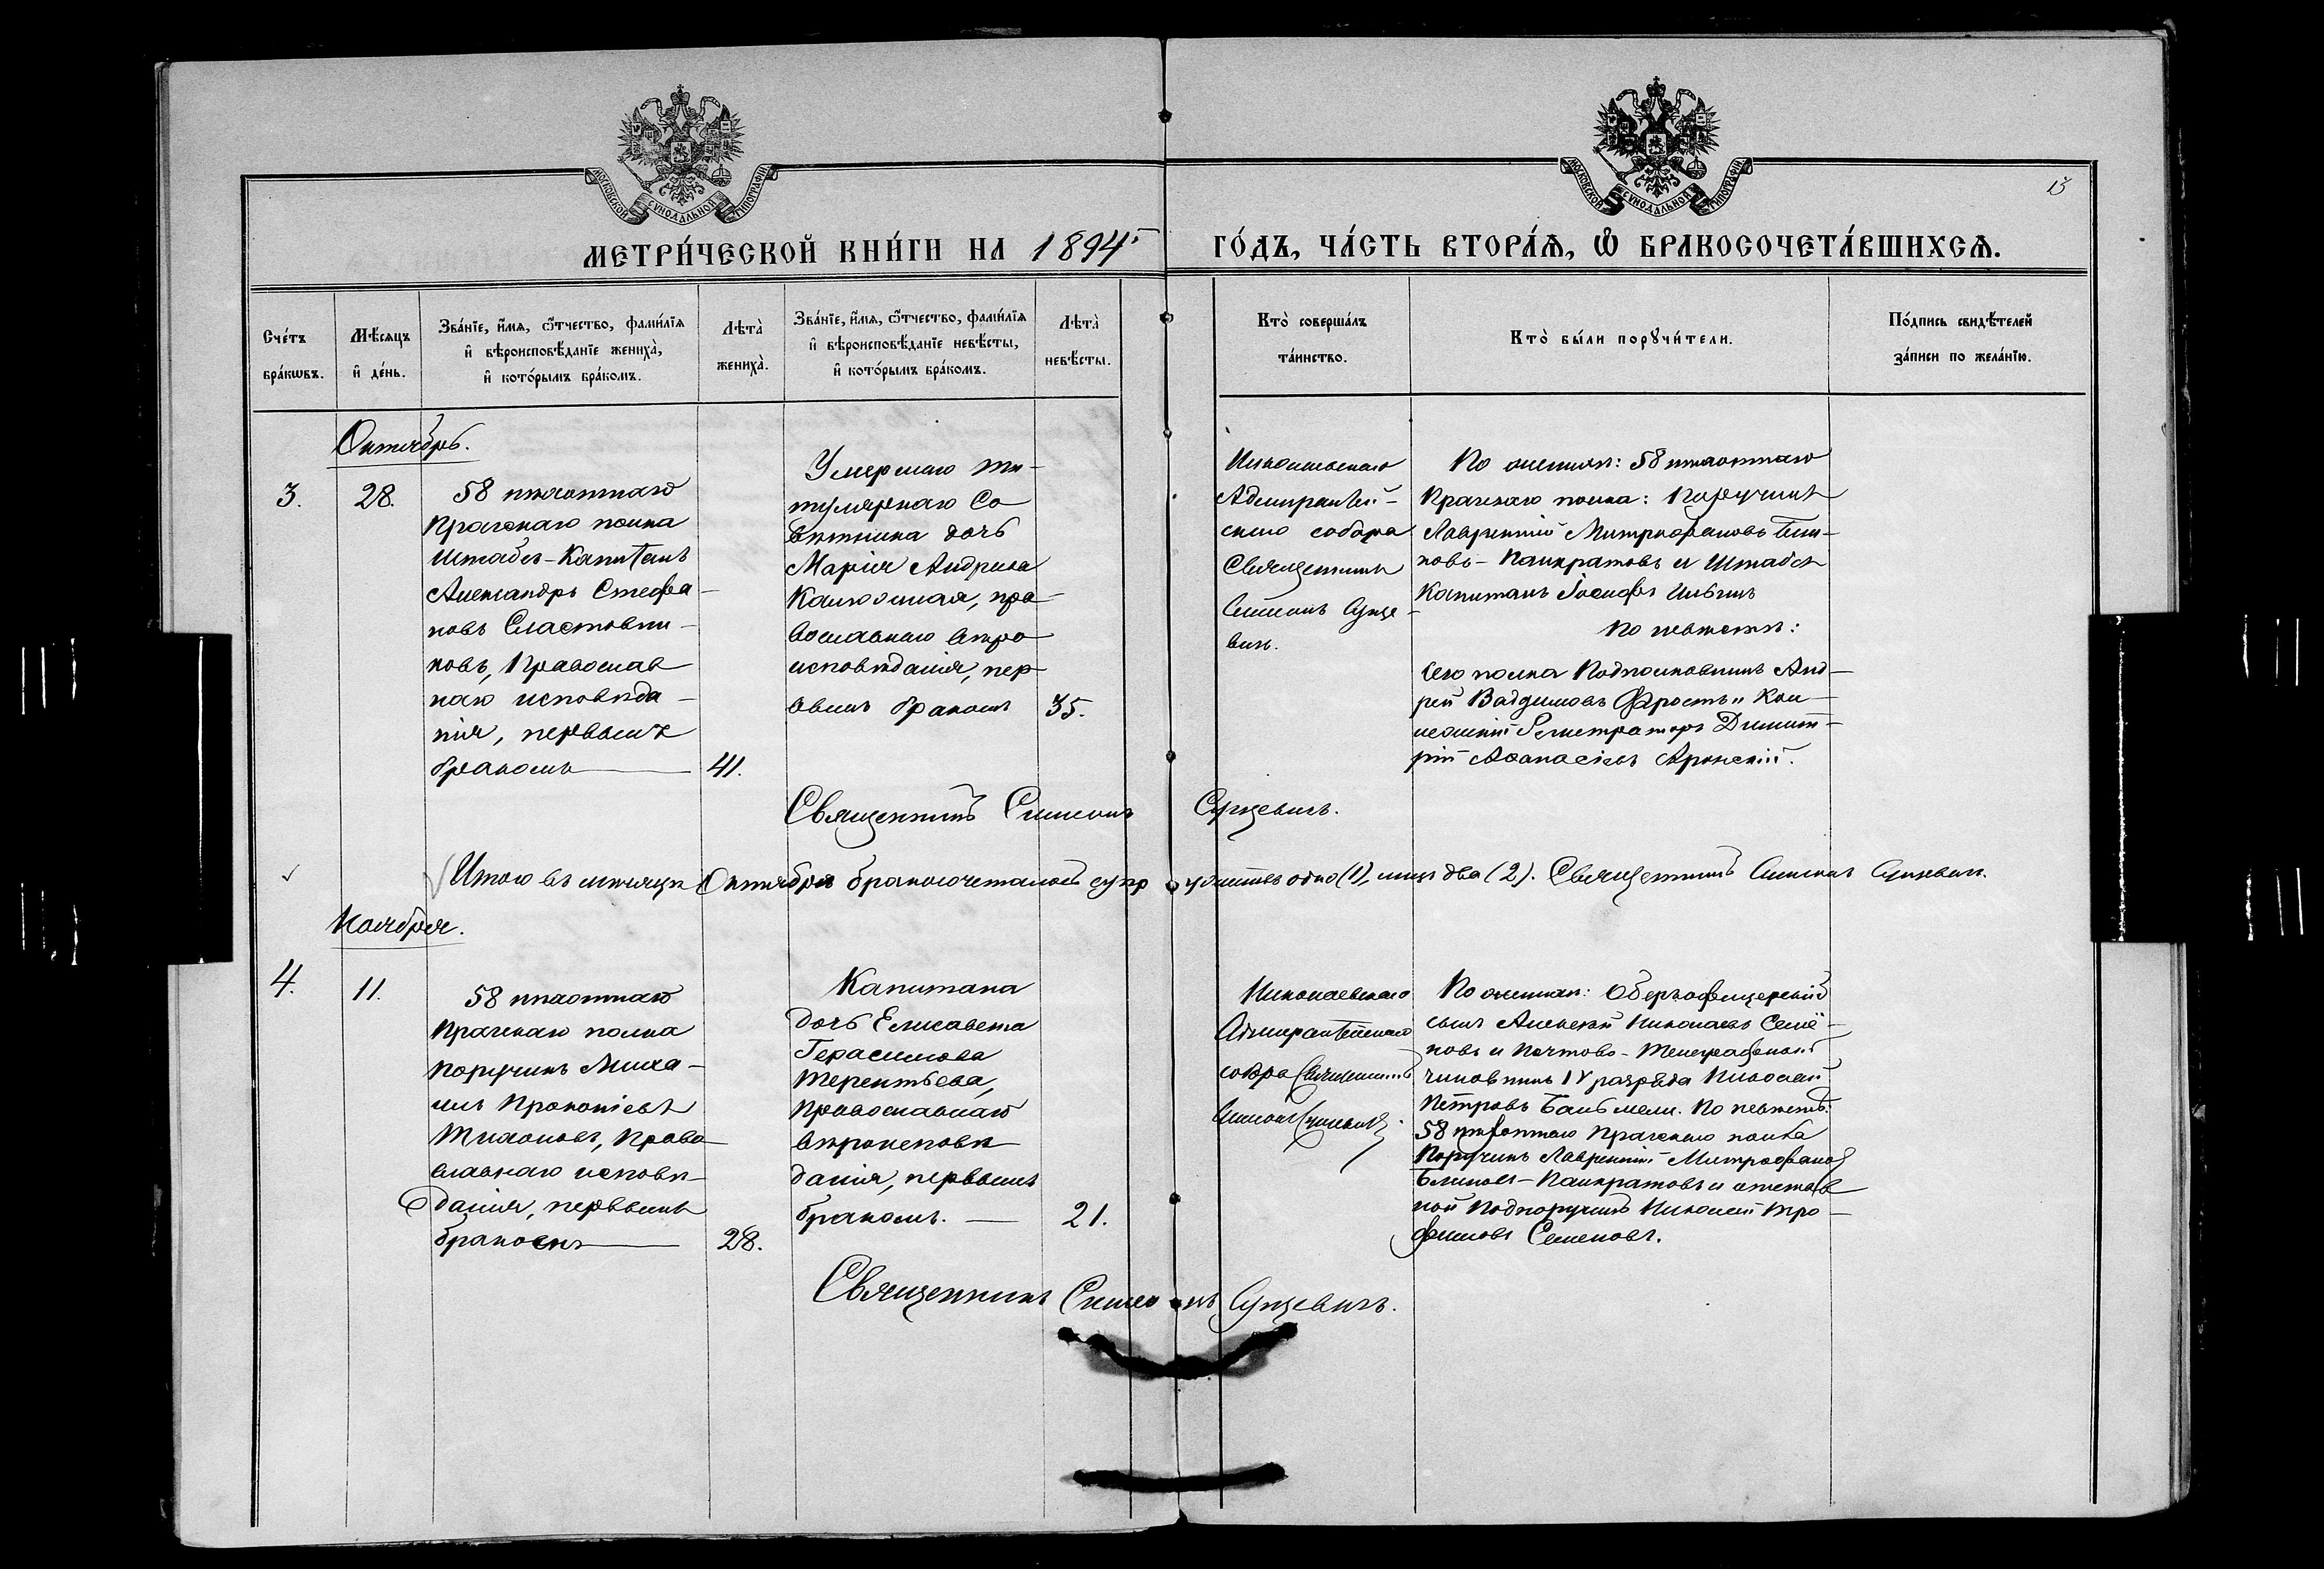 МОСКОВСКОЙ СѴНОДАЛЬНОЙ ТИПОГРАФІИ
МОСКОВСКОЙ СѴНОДАЛЬНОЙ ТИПОГРАФІИ
МЕТРИ́ЧЕСКОЙ КНИ́ГИ НА 1894 ГО́ДЪ, ЧА́СТЬ ВТОРА́Ѧ, Ѡ҆ БРАКОСОЧЕТА́ВШИХСѦ.
Сче́тъ
бра́кѡвъ.
Мѣ́сѧцъ
и҆ де́нь.
Зва́нїе, и҆́мѧ, ѻ҆́тчество, фами́лїѧ
и҆ вѣроисповѣ́данїе жениха̀,
и҆ кото́рымъ бра́комъ.
Лѣта̀
жениха̀.
Зва́нїе, и҆́мѧ, ѻ҆́тчество, фами́лїѧ
и҆ вѣроисповѣ́данїе невѣ́сты,
и҆ кото́рымъ бра́комъ.
Лѣта̀
невѣ́сты.
Кто̀ соверша́лъ
та́инство.
Кто̀ бы́ли порꙋчи́тели.
По́дпись свидѣ́телей
за́писи по жела́нїю.
Октябрь.
3.
28.
58 пѣхотнаго
Прагскаго полка
Штабсъ-Капитанъ
Александръ Стефа-
новъ Сластовни-
ковъ, Православ
наго исповѣда-
нія, первымъ
бракомъ
41.
Умершаго ти-
тулярнаго Со
вѣтника дочь
Марія Андреева
православнаго вѣро
исповѣданія, пер-
вымъ бракомъ
35.
Николаевскаго
Адмиралтей-
скаго собора
Священникъ
Симеонъ Сунце-
вичъ.
По женихѣ: 58 пѣхотнаго
Прагскаго полка: Поручикъ
Лаврентій Митрофановъ Бли-
новъ-Панкратовъ и Штабсъ
Капитанъ Іосифъ Ильинъ
По невѣстѣ:
сего полка Подполковникъ Анд-
рей Вадимовъ и Кол-
лежскій Регистраторъ Димит-
рій Аѳанасіевъ
Священникъ Симеонъ Сунцевичъ.
Итого въ мѣсяцѣ Октябрѣ бракосочеталось супружествъ одно (1), лицъ два (2). Священникъ Симеонъ Сунцевичъ.
Ноября.
4.
11.
58 пѣхотнаго
Прагскаго полка
Поручикъ Миха-
илъ Прокопіевъ
Тихоновъ, Право-
славнаго исповѣ-
данія, первымъ
бракомъ
28.
Капитана
дочь Елисавета
Герасимова
Терентьева,
Православнаго
вѣроисповѣ
данія, первымъ
бракомъ.
21.
Николаевскаго
Адмиралтейскаго
собора Священникъ
Симеонъ Сунцевичъ.
По женихѣ: Оберъофицерскій
сынъ Алексѣй Николаевъ Семё-
новъ и Почтово-Телеграфный
чиновникъ IV разряда Николай
Петровъ По невѣстѣ:
58 пѣхотнаго Прагскаго полка
Поручикъ Лаврентій Митрофановъ
Блиновъ-Панкратовъ и отстав
ной Подпоручикъ Николай Тро-
фимовъ Семеновъ.
Священникъ Симеонъ Сунцевичъ.